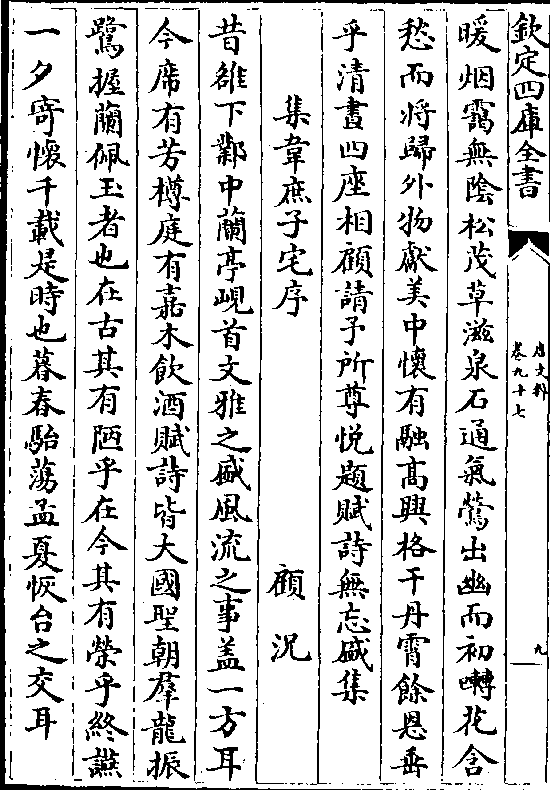 欽定四庫全書
唐文粹
卷九十七
九
暖烟靄無陰松茂草滋泉石通氣鶯出幽而初囀花含
愁而将歸外物獻美中懷有融髙興格于丹霄餘恩垂
乎清晝四座相顧請予所尊悦題賦詩無忘盛集
集韋庶子宅序 顧况
昔雒下鄴中蘭亭峴首文雅之盛風流之事盖一方耳
今席有芳樽庭有嘉木飲酒賦詩皆大國聖朝羣龍振
鷺握蘭佩玉者也在古其有陋乎在今其有榮乎終讌
一夕寄懷千載是時也暮春駘蕩孟夏恢台之交耳